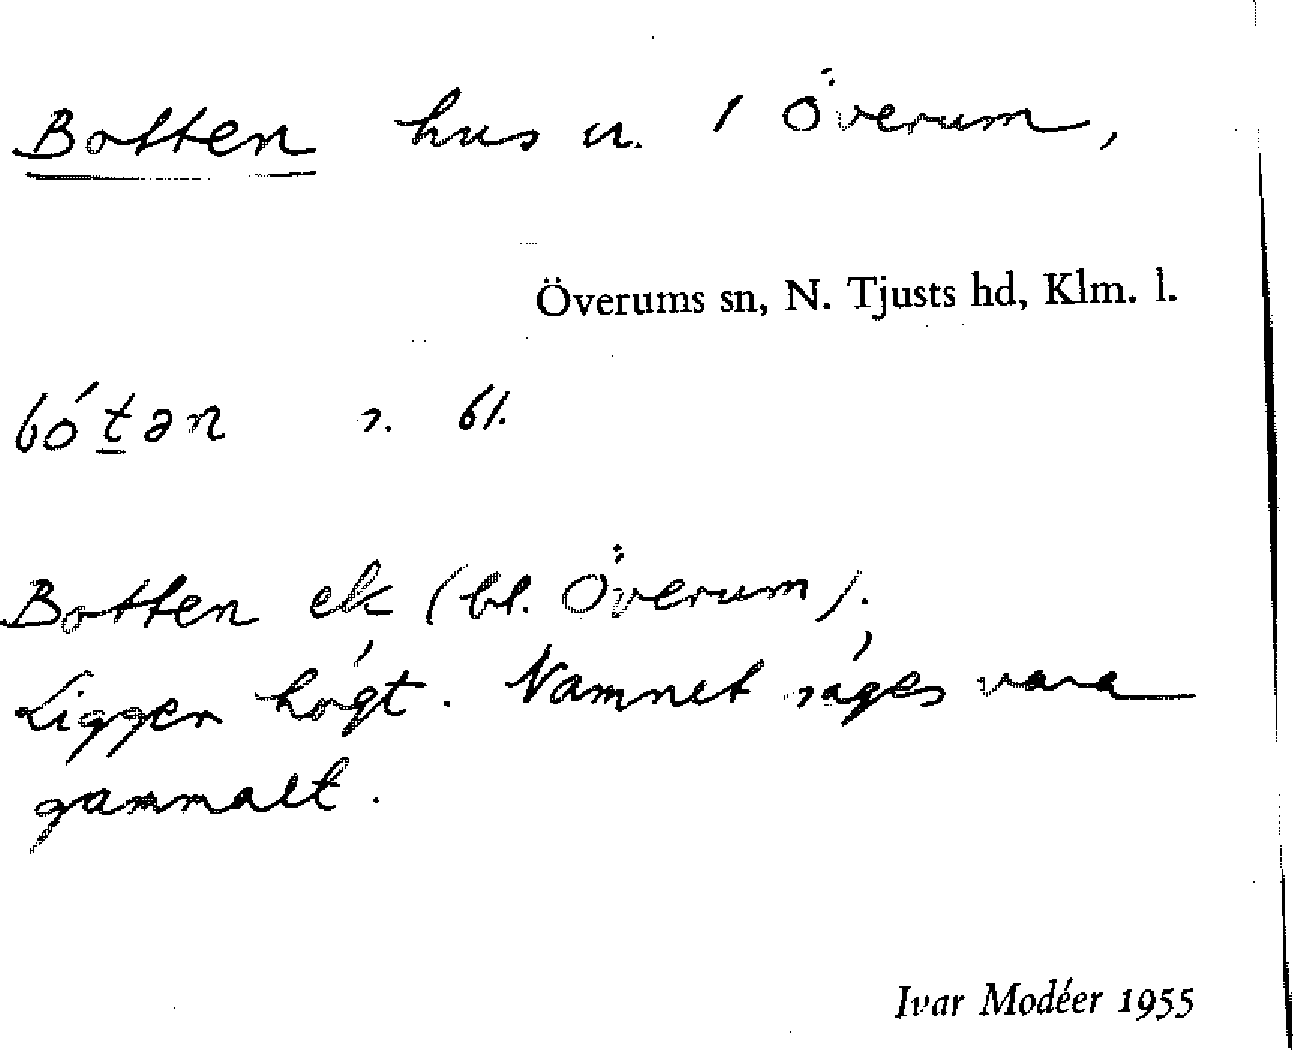 Botten hus u. / Överum,
Överums sn, N. Tjusts hd, Klm. l.
bótən s. bl.
Botten ek (bl. Överum).
Ligger högt. Namnet säges vara
gammalt.
Ivar Modéer 1955